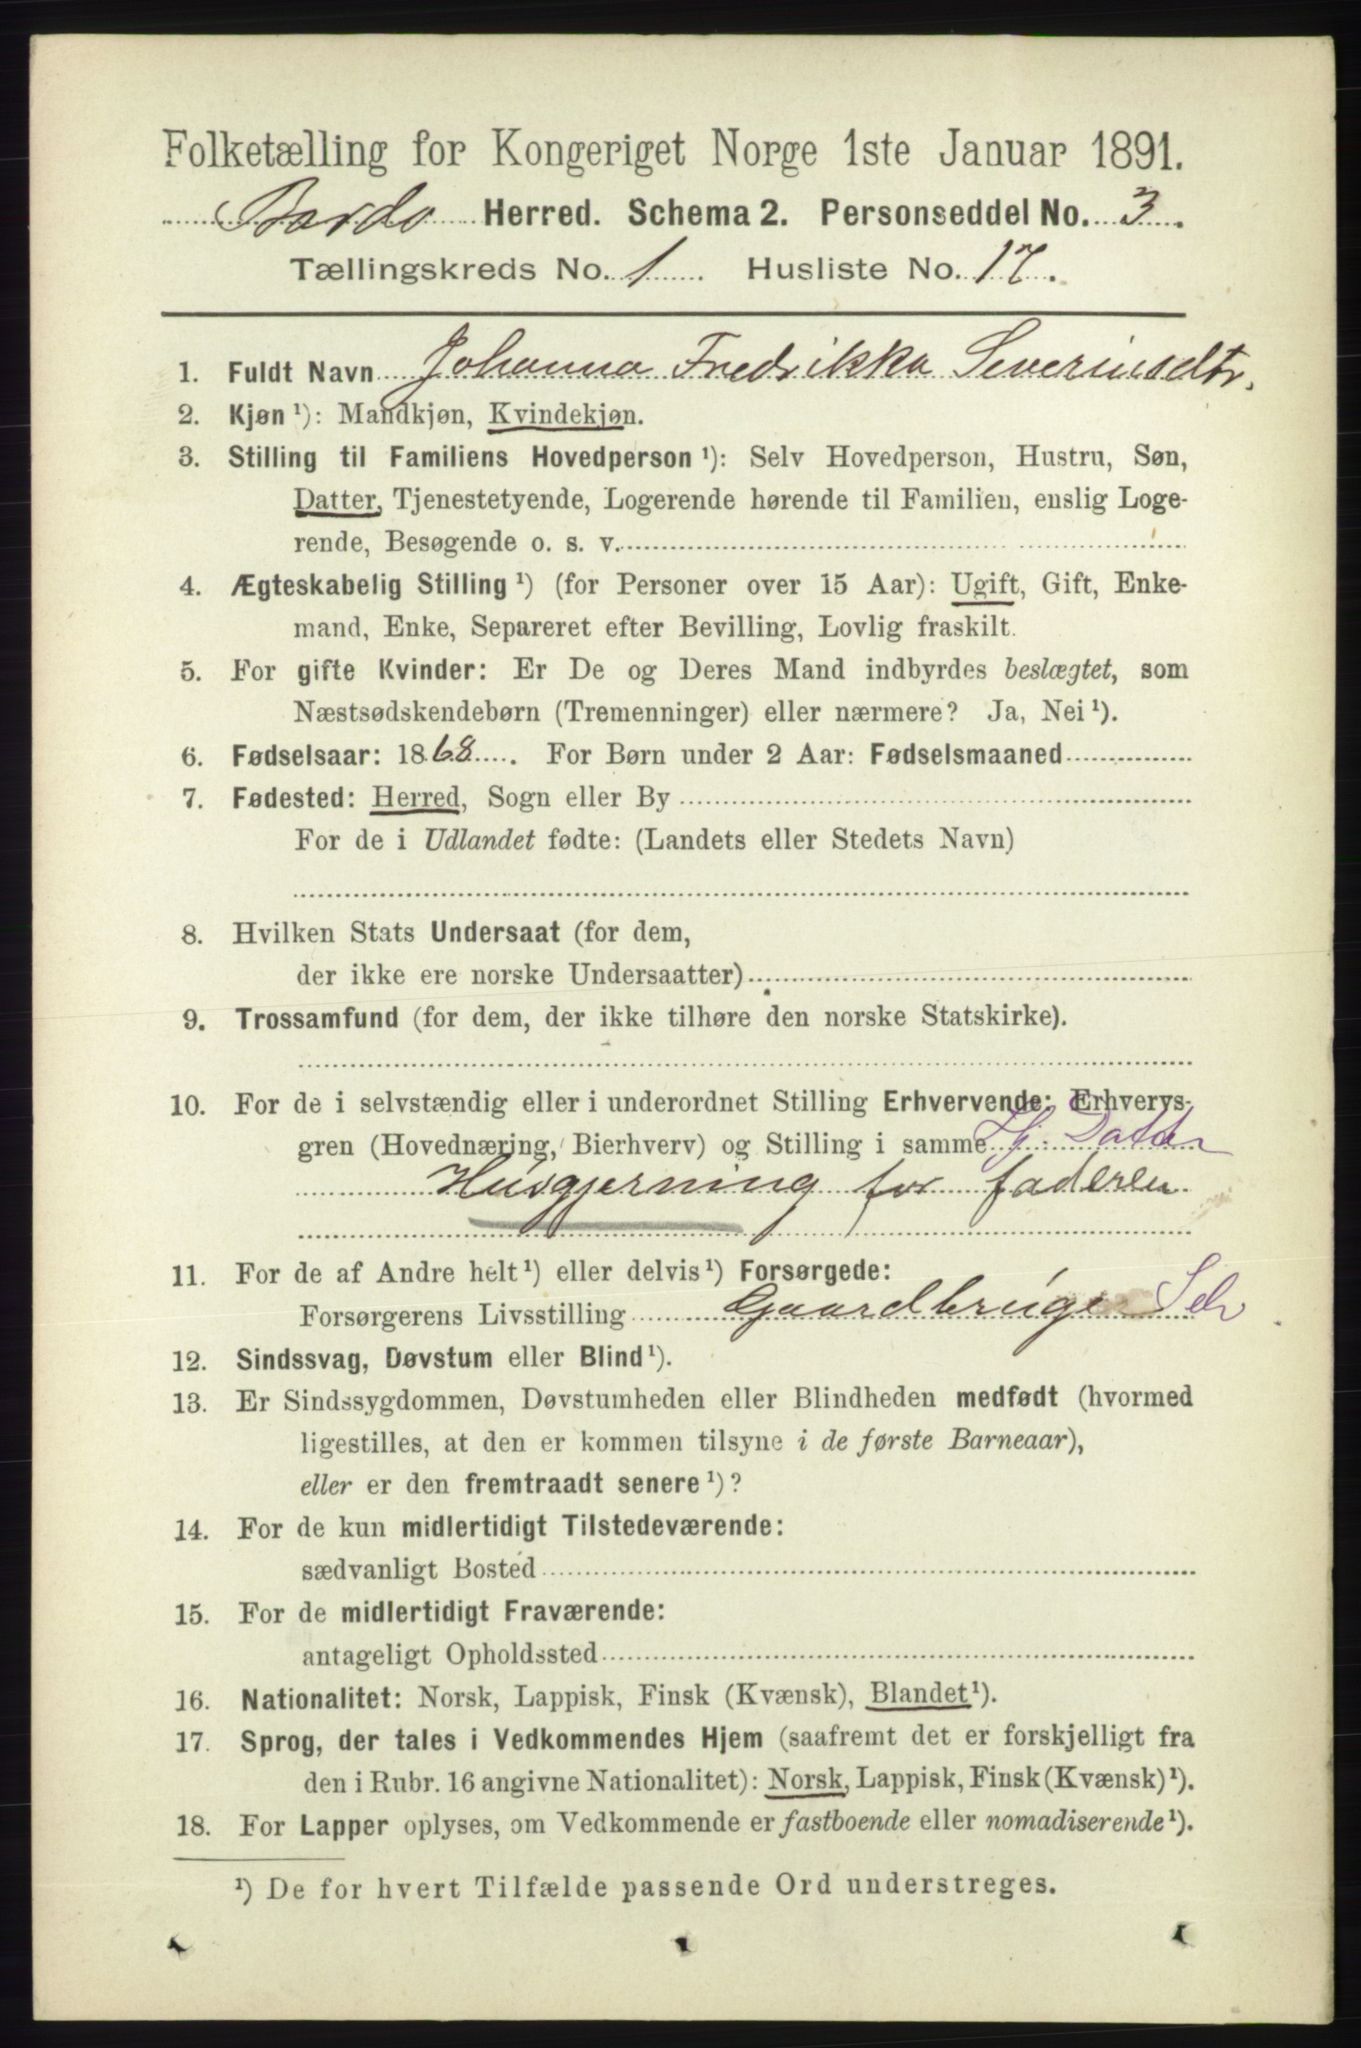 Folketælling for Kongeriget Norge 1ste Januar 1891.
Bardo Herred. Schema 2. Personseddel No. 3.
Tællingskreds No. 1 Husliste No. 17.
1. Fuldt Navn Johanna Fredrikka Severinsdtr.
2. Kjøn ¹): Mandkjøn, Kvindekjøn.
3. Stilling til Familiens Hovedperson ¹): Selv Hovedperson, Hustru, Søn,
Datter, Tjenestetyende, Logerende hørende til Familien, enslig Loge-
rende, Besøgende o. s. v.
4. Ægteskabelig Stilling ¹) (for Personer over 15 Aar): Ugift, Gift, Enke-
mand, Enke, Separeret efter Bevilling, Lovlig fraskilt.
5. For gifte Kvinder: Er De og Deres Mand indbyrdes beslægtet, som
Næstsødskendebørn (Tremenninger) eller nærmere? Ja, Nei ¹).
6. Fødselsaar: 1868. For Børn under 2 Aar: Fødselsmaaned
7. Fødested: Herred, Sogn eller By
For de i Udlandet fødte: (Landets eller Stedets Navn)
8. Hvilken Stats Undersaat (for dem,
der ikke ere norske Undersaatter)
9. Trossamfund (for dem, der ikke tilhøre den norske Statskirke).
10. For de i selvstændig eller i underordnet Stilling Erhvervende: Erhvervs-
gren (Hovednæring, Bierhverv) og Stilling i samme Hj. Datter
Husgjerning for faderen
11. For de af Andre helt ¹) eller delvis ¹) Forsørgede:
Forsørgerens Livsstilling Gaardbruger Selv
12. Sindssvag, Døvstum eller Blind ¹).
13. Er Sindssygdommen, Døvstumheden eller Blindheden medfødt (hvormed
ligestilles, at den er kommen tilsyne i de første Barneaar),
eller er den fremtraadt senere ¹)?
14. For de kun midlertidigt Tilstedeværende:
sædvanligt Bosted
15. For de midlertidigt Fraværende:
antageligt Opholdssted
16. Nationalitet: Norsk, Lappisk, Finsk (Kvænsk), Blandet ¹).
17. Sprog, der tales i Vedkommendes Hjem (saafremt det er forskjelligt fra
den i Rubr. 16 angivne Nationalitet): Norsk, Lappisk, Finsk (Kvænsk) ¹).
18. For Lapper oplyses, om Vedkommende er fastboende eller nomadiserende ¹).
¹) De for hvert Tilfælde passende Ord understreges.